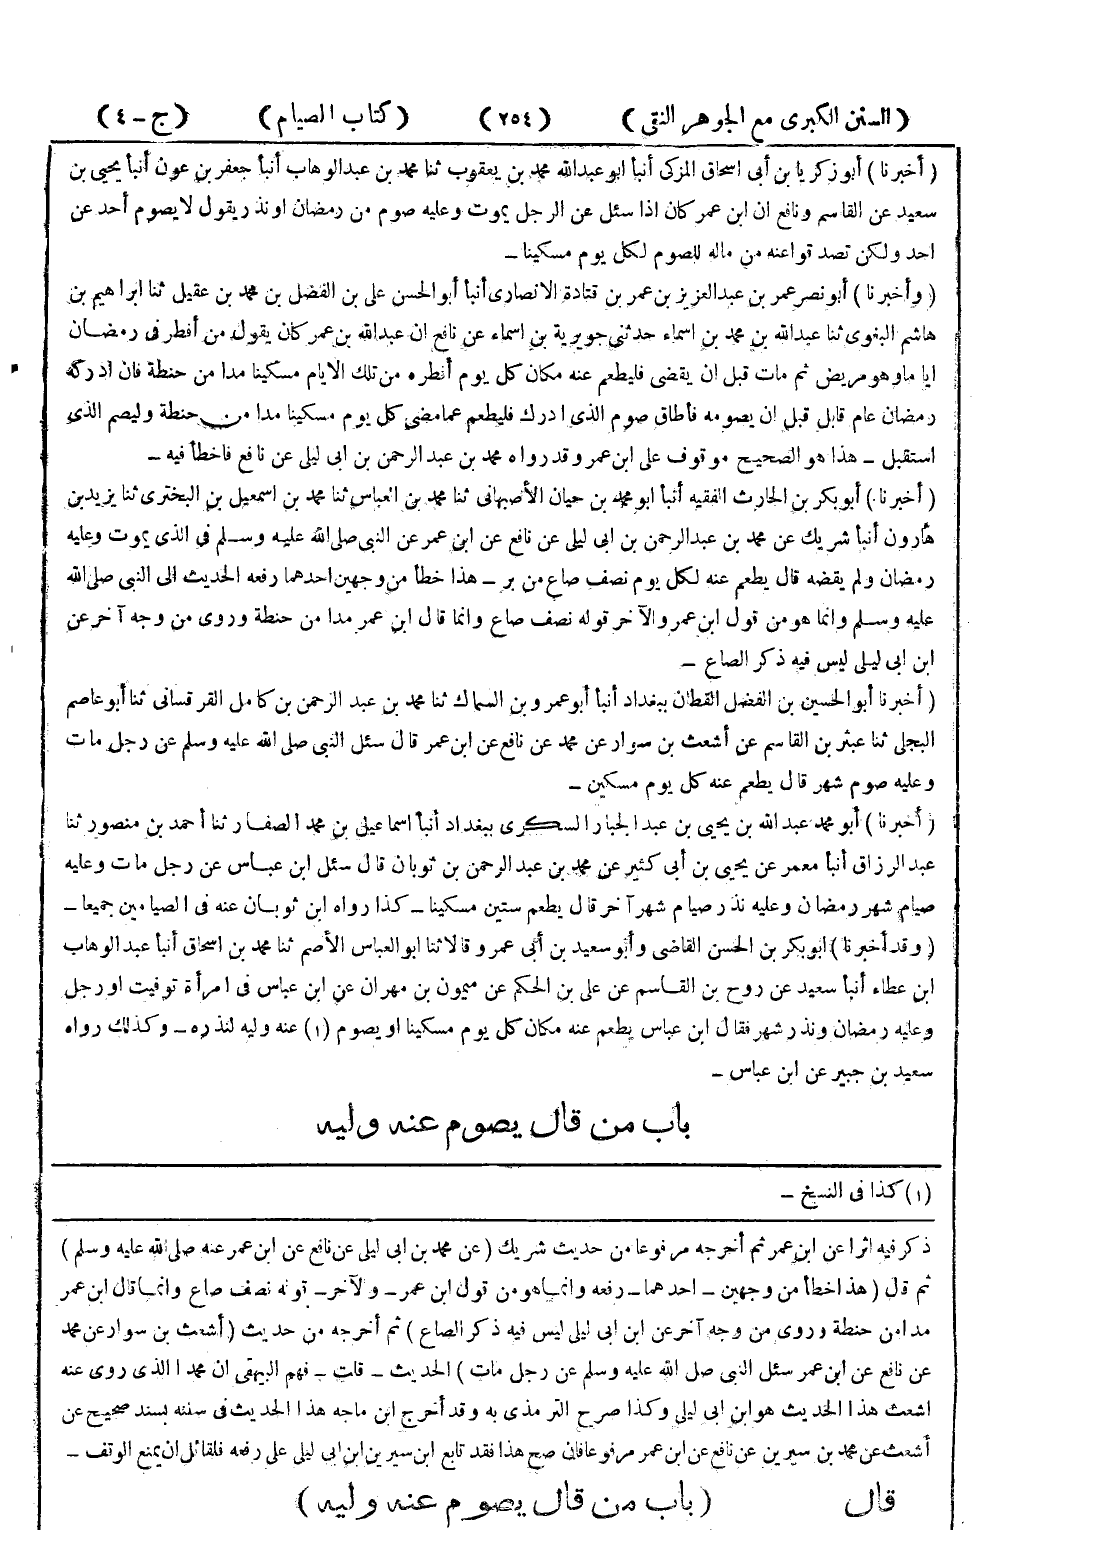 (السنن الكبرى مع الجوهر النقى) (٢٥٤) (كتاب الصيام) (ج - ٤)
(أخبرنا) أبو زكريا بن أبى اسحاق المزكى أنبأ ابو عبدالله محمد بن يعقوب ثنا محمد بن عبدالوهاب أنبأ جعفر بن عون أنبأ يحيى بن
سعيد عن القاسم ونافع ان ابن عمر كان اذا سئل عن الرجل يموت وعليه صوم من رمضان او نذر يقول لا يصوم أحد عن
احد ولكن تصدقوا عنه من ماله للصوم لكل يوم مسكينا ـ
(وأخبرنا) أبو نصر عمر بن عبدالعزيز بن عمر بن قتادة الانصارى أنبأ أبو الحسن على بن الفضل بن محمد بن عقيل ثنا ابراهيم بن
هاشم البغوى ثنا عبدالله بن محمد بن اسماء حدثنى جويرية بن اسماء عن نافع ان عبدالله بن عمر كان يقول من أفطر فى رمضان
اياما وهو مريض ثم مات قبل ان يقضى فليطعم عنه مكان كل يوم أفطره من تلك الايام مسكينا مدا من حنطة فان ادركه
رمضان عام قابل قبل ان يصومه فأطاق صوم الذى ادرك فليطعم عما مضى كل يوم مسكينا مدا من حنطة وليصم الذى
استقبل ـ هذا هو الصحيح موقوف على ابن عمر وقد رواه محمد بن عبد الرحمن بن ابى ليلى عن نافع فاخطأ فيه ـ
(أخبرنا) أبو بكر بن الحارث الفقيه أنبأ ابو محمد بن حيان الأصبهانى ثنا محمد بن العباس ثنا محمد بن اسمعيل بن البخترى ثنا يزيد بن
هارون أنبأ شريك عن محمد بن عبدالرحمن بن ابى ليلى عن نافع عن ابن عمر عن النبى صلى الله عليه وسلم فى الذى يموت وعليه
رمضان ولم يقضه قال يطعم عنه لكل يوم نصف صاع من بر ـ هذا خطأ من وجهين احدهما رفعه الحديث الى النبى صلى الله
عليه وسلم وانما هو من قول ابن عمر والآخر قوله نصف صاع وانما قال ابن عمر مدا من حنطة وروى من وجه آخر عن
ابن ابى ليلى ليس فيه ذكر الصاع ـ
(أخبرنا أبو الحسين بن الفضل القطان ببغداد أنبأ أبو عمرو بن السماك ثنا محمد بن عبد الرحمن بن كامل القرقسانى ثنا أبو عاصم
البجلى ثنا عبثر بن القاسم عن أشعث بن سوار عن محمد عن نافع عن ابن عمر قال سئل النبى صلى الله عليه وسلم عن رجل مات
وعليه صوم شهر قال يطعم عنه كل يوم مسكين ـ
(أخبرنا) أبو محمد عبد الله بن يحيى بن عبد الجبار السكرى ببغداد أنبأ اسماعيل بن محمد الصفار ثنا أحمد بن منصور ثنا
عبد الرزاق أنبأ معمر عن يحيى بن أبى كثير عن محمد بن عبد الرحمن بن ثوبان قال سئل ابن عباس عن رجل مات وعليه
صيام شهر رمضان وعليه نذر صيام شهر آخر قال يطعم ستين مسكينا ـ كذا رواه ابن ثوبان عنه فى الصيامين جميعا ـ
(وقد أخبرنا) ابو بكر بن الحسن القاضى وأبو سعيد بن أبى عمرو قالا ثنا ابو العباس الأصم ثنا محمد بن اسحاق أنبأ عبد الوهاب
ابن عطاء أنبأ سعيد عن روح بن القاسم عن على بن الحكم عن ميمون بن مهران عن ابن عباس فى امرأة توفيت او رجل
وعليه رمضان ونذر شهر فقال ابن عباس يطعم عنه مكان كل يوم مسكينا او يصوم (١) عنه وليه لنذره ـ وكذلك رواه
سعيد بن جبير عن ابن عباس ـ
باب من قال يصوم عنه وليه
(١) كذا فى النسخ ـ
ذكر فيه اثرا عن ابن عمر ثم أخرجه مرفوعا من حديث شريك (عن محمد بن ابى ليلى عن نافع عن ابن عمر عنه صلى الله عليه وسلم)
ثم قال (هذا خطأ من وجهين ـ احدهما ـ رفعه وانما هو من قول ابن عمر ـ والآخر ـ قوله نصف صاع وانما قال ابن عمر
مدا من حنطة وروى من وجه آخر عن ابن ابى ليلى ليس فيه ذكر الصاع) ثم أخرجه من حديث (أشعث بن سوار عن محمد
عن نافع عن ابن عمر سئل النبى صلى الله عليه وسلم عن رجل مات) الحديث ـ قلت ـ فهم البيهقى ان محمدا الذى روى عنه
اشعث هذا الحديث هو ابن ابى ليلى وكذا صرح الترمذى به وقد أخرج ابن ماجه هذا الحديث فى سننه بسند صحيح عن
أشعث عن محمد بن سيرين عن نافع عن ابن عمر مرفوعا فان صح هذا فقد تابع ابن سيرين ابن ابى ليلى على رفعه فلقائل ان يمنع الوقف ـ
قال (باب من قال يصوم عنه وليه)